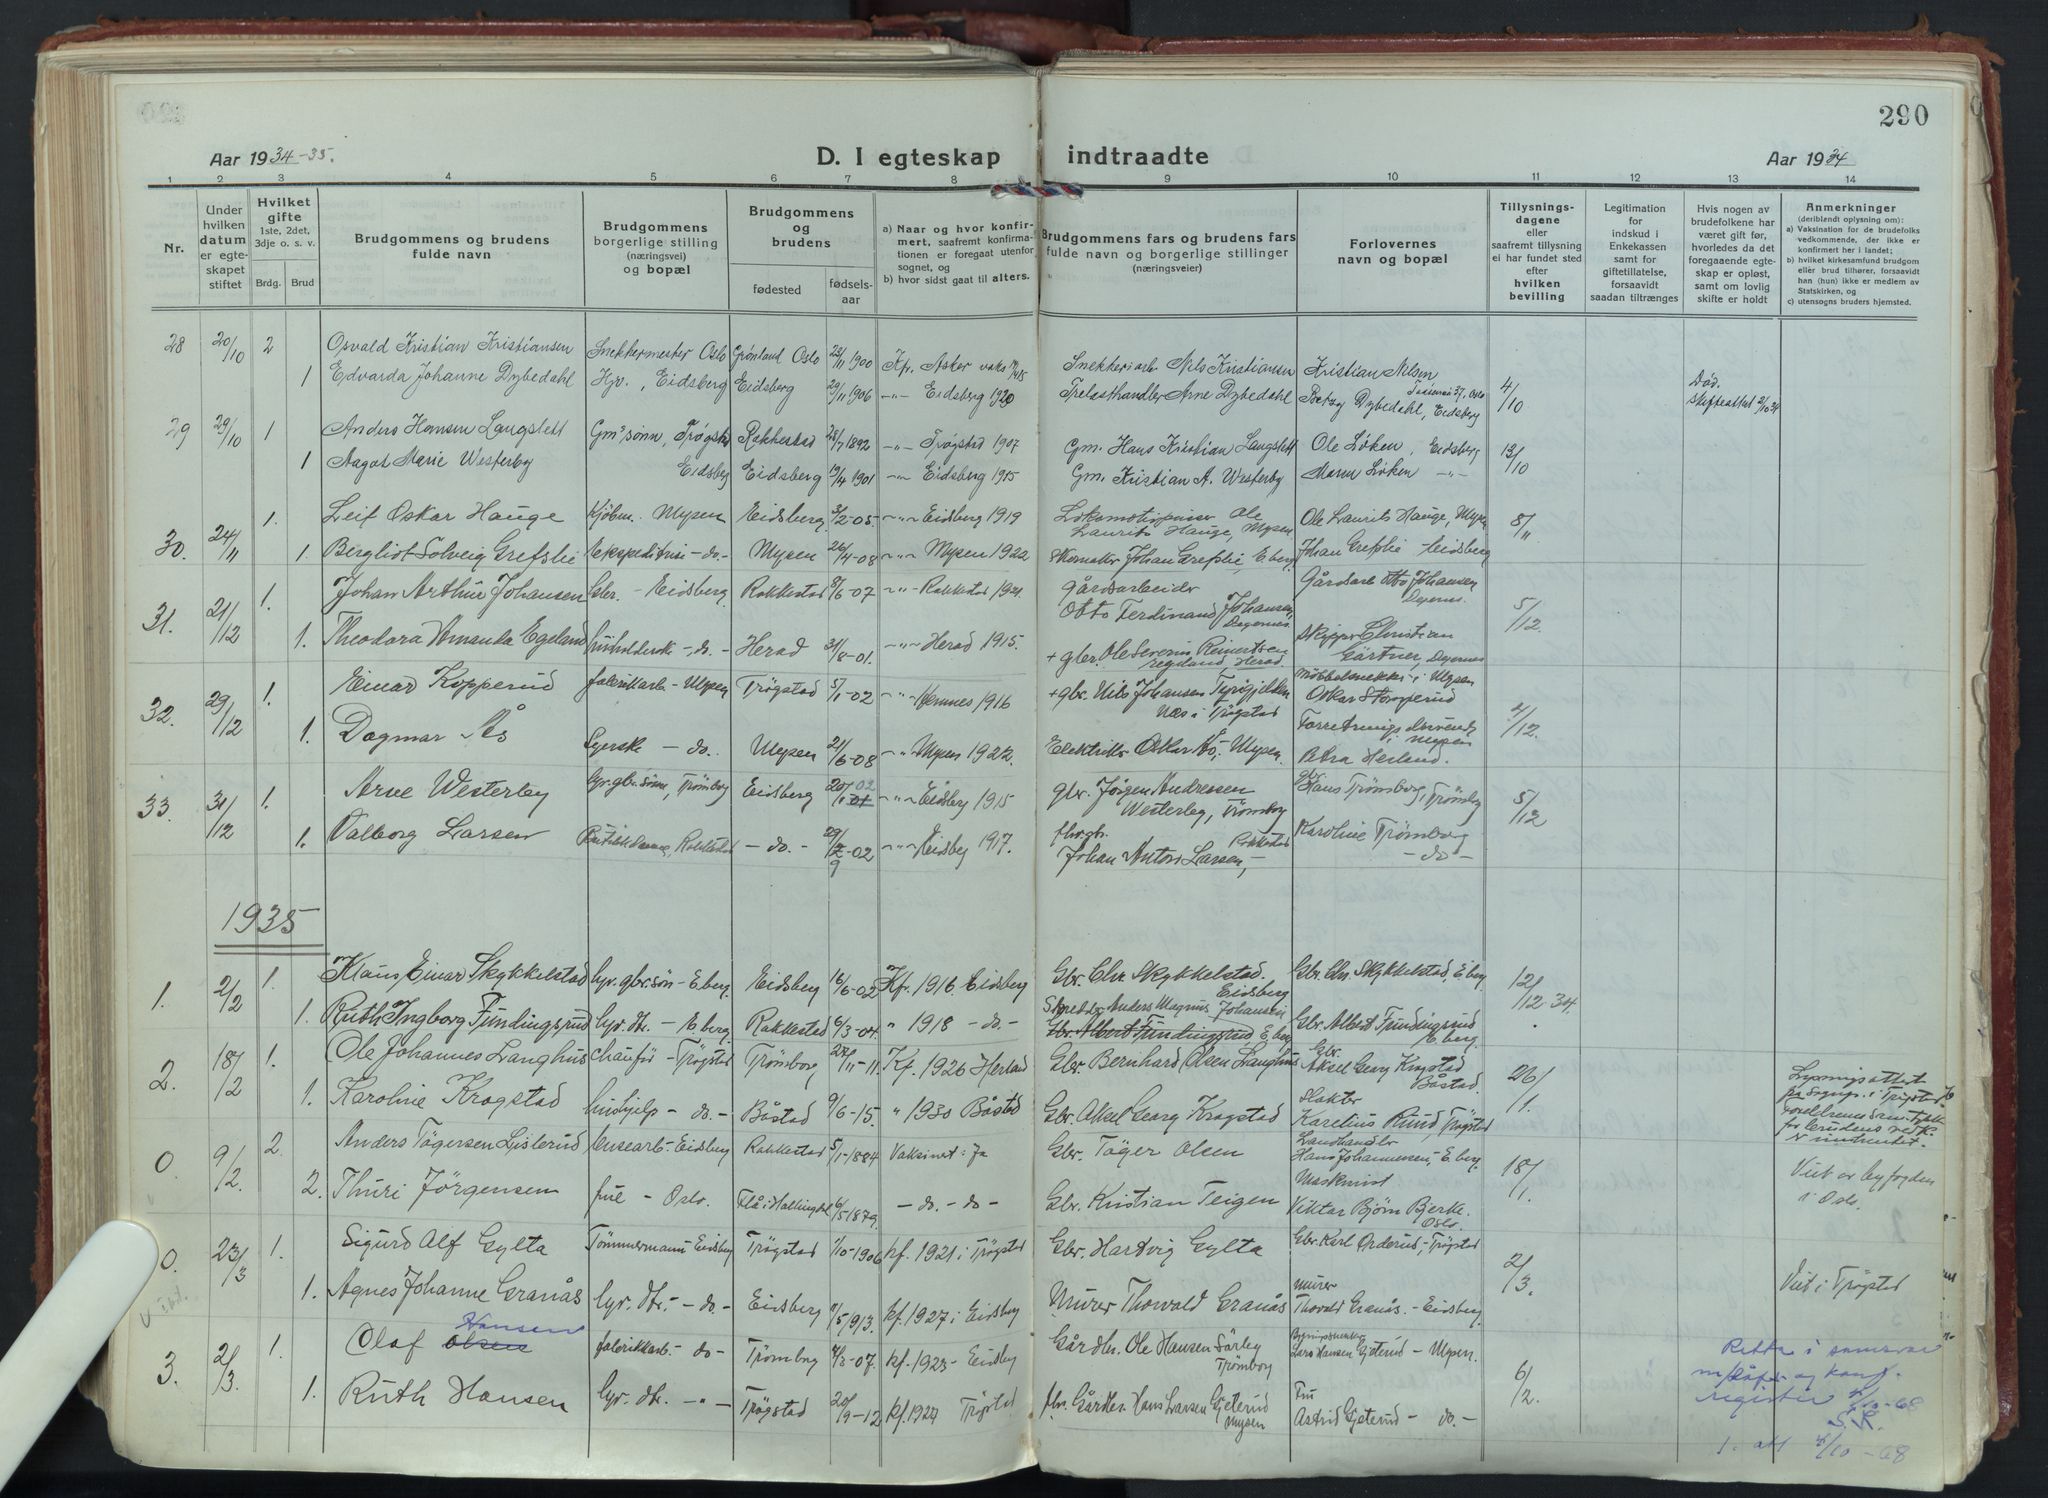 290
Aar 1934-35.
D. I egteskap indtraadte
Aar 1934
1 2 3 4 5 6 7 8 9 10 11 12 13 14
Nr.
Under hvilken datum er egteskapet stiftet
Hvilket gifte 1ste, 2det, 3dje o. s. v.
Brdg. Brud
Brudgommens og brudens fulde navn
Brudgommens borgerlige stilling (næringsvei) og bopæl
Brudgommens og brudens
fødested
fødselsaar
a) Naar og hvor konfirmert, saafremt konfirmationen er foregaaet utenfor sognet, og
b) hvor sidst gaat til alters.
Brudgommens fars og brudens fars fulde navn og borgerlige stillinger (næringsveier)
Forlovernes navn og bopæl
Tillysningsdagene eller saafremt tillysning ei har fundet sted efter hvilken bevilling
Legitimation for indskud i Enkekassen samt for giftetillatelse, forsaavidt saadan tiltrænges
Hvis nogen av brudefolkene har været gift før, hvorledes da det foregaaende egteskap er opløst, samt om lovlig skifte er holdt
Anmerkninger (deriblendt oplysning om):
a) Vaksination for de brudefolks vedkommende, der ikke er konfirmert her i landet;
b) hvilket kirkesamfund brudgom eller brud tilhører, forsaavidt han (hun) ikke er medlem av Statskirken, og
c) utensogns bruders hjemsted.
28 20/10 2 Osvald Kristian Kristiansen Snekkermester Oslo Grønland Oslo 23/11 1900 Kf. Asker Snekkerarb. Nils Kristiansen Kristian Nilsen
1 Edvarda Johanne Dybedahl Hjv., Eidsberg Eidsberg 29/11 1906 -"- Eidsberg 1920 Trelasthandler Arne Dybedahl Betzy Dybedahl, Eidsberg 4/10 Død. Skifteattest 2/10 34
29 29/10 1 Anders Hansen Langslett Gm's sønn, Trøgstad Rakkestad 28/7 1892 -"- Trøgstad 1907 Gm. Hans Kristian Langslett Ole Løken, Eidsberg 13/10
1 Aagot Marie Westerby Eidsberg Eidsberg 19/4 1901 -"- Eidsberg 1915 Gm. Kristian A. Westerby Maren Løken -"-
30. 24/11 1. Leif Oskar Hauge Kjøbm. Mysen Eidsberg 3/2-05. -"- Eidsberg 1919 Lokomotivpusser Ole Laurits Hauge, Mysen Ole Laurits Hauge, Mysen 8/11
1. Bergliot Solveig Grefslie Ekspeditrise -do- Mysen 26/4-08 -"- Mysen 1922 Skomaker Johan Grefslie, E.berg Johan Grefslie -Eidsberg
31. 21/12 1. Johan Arthur Johansen Gbr. - Eidsberg Rakkestad 8/6-07 -"- Rakkestad 1921. Gårdsarbeider Otto Ferdinand Johansen, Degernes. Gårdsarb Otto Johansen Degernes. 5/12.
1. Theodora Amanda Egeland husholderske -do.- Herad 31/8-01. -"- Herad 1915. + gbr. Ole Severin Reinertsen Egeland, Herad. Skipper Christian Gärtner, Degernes
32. 29/12 1. Einar Kopperud fabrikkarb - Mysen Trøgstad 5/1-02 -"- Hemnes 1916 + gbr. Nils Johansen Næs i Trøgstad Møbelsnekker i Mysen Oskar 2/12.
1. Dagmar Ås Syerske - do. Mysen 21/6-08 -"- Mysen 1922. Elektriker Oskar Ås, Mysen Forretningsdrivende i Mysen Petra Herland.
33. 31/12 1. Arve Westerby Gbr.sønn, Trømborg Eidsberg 20/1 01 02 -"- Eidsberg 1915 gbr. Jörgen Andressen Westerby, Trömborg gbr. Hans Trömborg, Trömborg 5/12
1. Valborg Larsen Butikkdame, Rakkestad - do. - 29/9-02 -"- Eidsberg 1917. Johan Anton Larsen, Rakkestad Karoline Trömborg - do -
1935
1. 2/2 1. Klaus Einar Skykkelstad hjv. gbr.søn - E.berg. Eidsberg 16/6-02 Kf. 1916. Eidsberg Gbr. Chr. Skykkelstad. Eidsberg Gbr. Chr. Skykkelstad, E.berg. 12/12-34.
1. Ruth Ingborg Fundingsrud hjv. dtr. - E.berg. Rakkestad 6/3-04. " 1918 - do. - Skredder Anders Magnus Johansen Gbr. Albert Fundingsrud, E.berg Gbr. Albert Fundingsrud E.berg.
2. 18/2 1. Ole Johannes Langhus chaufør - Trøgstad Trömborg 27/11-11. Kf. 1926 Herland Gbr. Bernhard Olsen Langhus Gbr. Aksel Georg Krogstad Båstad. 26/1.
1. Karoline Krogstad hushjelp - do. - Båstad 9/6-15. " 1930 Båstad Gbr. Aksel Georg Krogstad Slakter Karelius Rund, Trøgstad
0. 9/2. 2. Anders Tögersen Lislerud - Eidsberg Rakkestad 5/1-1884 Vaksinert: Ja Gbr. Töger Olsen Landhandler Hans Johannesen - E.berg. 18/1. Viet av byfogden i Oslo.
2. Thuri Jörgensen frue - Oslo. Flå i Hallingdal 6/5 1879. - do. - do - Gbr. Kristian Teigen Maskinist Viktor Bjørn Bjerke Oslo.
0. 23/3 1. Sigurd Alf Gylta Tömmermann Eidsberg Trøgstad 1/10-1906 kf. 1921 i Trøgstad Gbr. Hartvig Gylta Gbr. Karl Orderud - Trøgstad 2/3. Viet i Trøgstad
1. Agnes Johanne Granås hjv. dtr. - do - Eidsberg 11/5 1913. kf. 1927 i Eidsberg Murer Thorvald Granås Murer Thorvald Granås. - Eidsberg
3. 2/3. 1. Olaf Olsen Hansen fabrikkarb - do - Trömborg 7/3-07. kf. 1923 - Eidsberg Gårdbr. Ole Hansen Särley Trömborg Lars Hansen Gjeterud - Mysen. 6/2.
1. Ruth Hansen hjv. dtr. - " - Trøgstad 20/9-12 kf. 1927 Trøgstad fhv. Gårdbr. Hans Larsen Gjeterud Mysen Fru Astrid Gjeterud - do. -
Rettet i samsvar m/ dåps og konf. register 4/10-68 S.K.
1. att 4/10-68